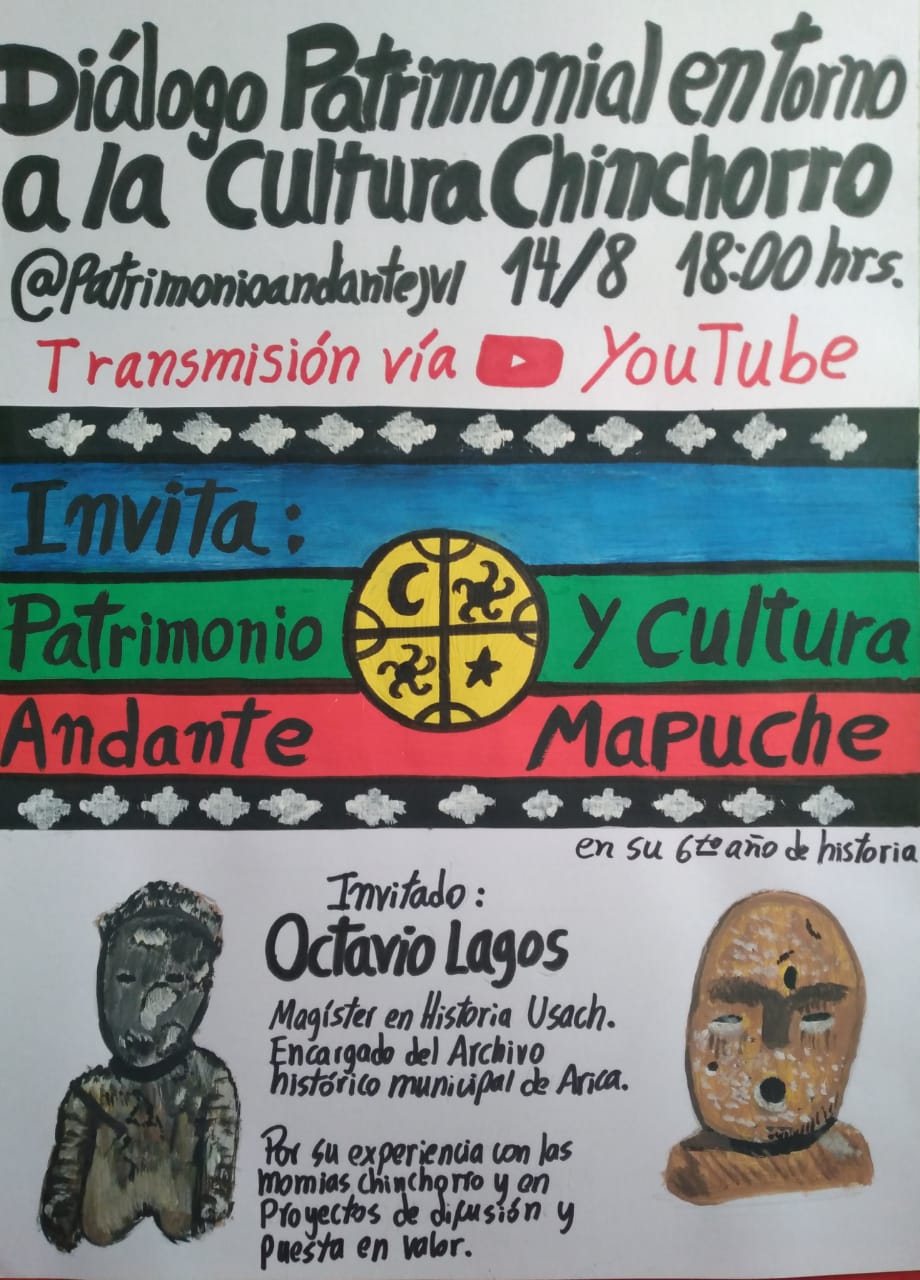 Diálogo Patrimonial en torno
a la Cultura Chinchorro
@Patrimonioandantejvl 14/8 18:00 hrs.
Transmisión vía YouTube
Invita:
Patrimonio y Cultura
Andante Mapuche
en su 6to año de historia
Invitado:
Octavio Lagos
Magíster en Historia Usach.
Encargado del Archivo
histórico municipal de Arica.
Por su experiencia con las
momias chinchorro y en
Proyectos de difusión y
puesta en valor.